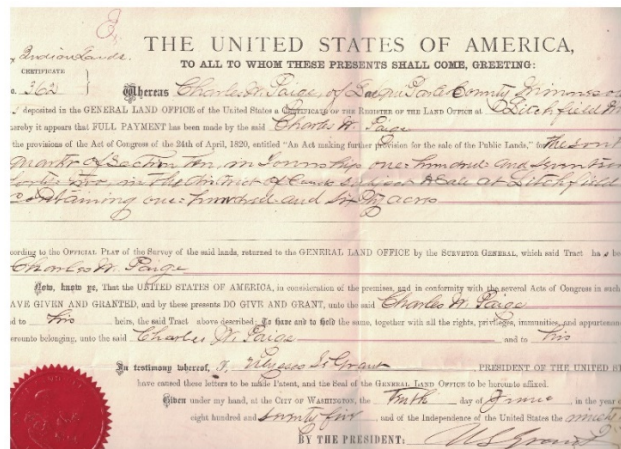 Indian Lands.
CERTIFICATE
362
THE UNITED STATES OF AMERICA,
TO ALL TO WHOM THESE PRESENTS SHALL COME, GREETING:
Whereas Charles W. Paige, of Lac qui Parle County Minnesota
deposited in the GENERAL LAND OFFICE of the United States a CERTIFICATE OF THE REGISTER OF THE LAND OFFICE at Litchfield
hereby it appears that FULL PAYMENT has been made by the said Charles W. Paige
the provisions of the Act of Congress of the 24th of April, 1820, entitled "An Act making further provision for the sale of the Public Lands," for the
quarter of Section ten, in Township one hundred and seventeen
in the district of Lands subject to Sale at Litchfield
containing one hundred and sixty acres
cording to the OFFICIAL PLAT of the Survey of the said lands, returned to the GENERAL LAND OFFICE by the SURVEYOR GENERAL, which said Tract has be
Charles W. Paige
Now, know ye, That the UNITED STATES OF AMERICA, in consideration of the premises, and in conformity with the several Acts of Congress in such
AVE GIVEN AND GRANTED, and by these presents DO GIVE AND GRANT, unto the said Charles W. Paige
d to his heirs, the said Tract above described: To have and to hold the same, together with all the rights, privileges, immunities, and appurtenan
ereunto belonging, unto the said Charles W. Paige and to his
In testimony whereof, I, Ulysses S. Grant PRESIDENT OF THE UNITED ST
have caused these letters to be made Patent, and the Seal of the GENERAL LAND OFFICE to be hereunto affixed.
Given under my hand, at the CITY OF WASHINGTON, the tenth day of June in the year o
eight hundred and seventy five and of the Independence of the United States the ninety
BY THE PRESIDENT: U.S. Grant